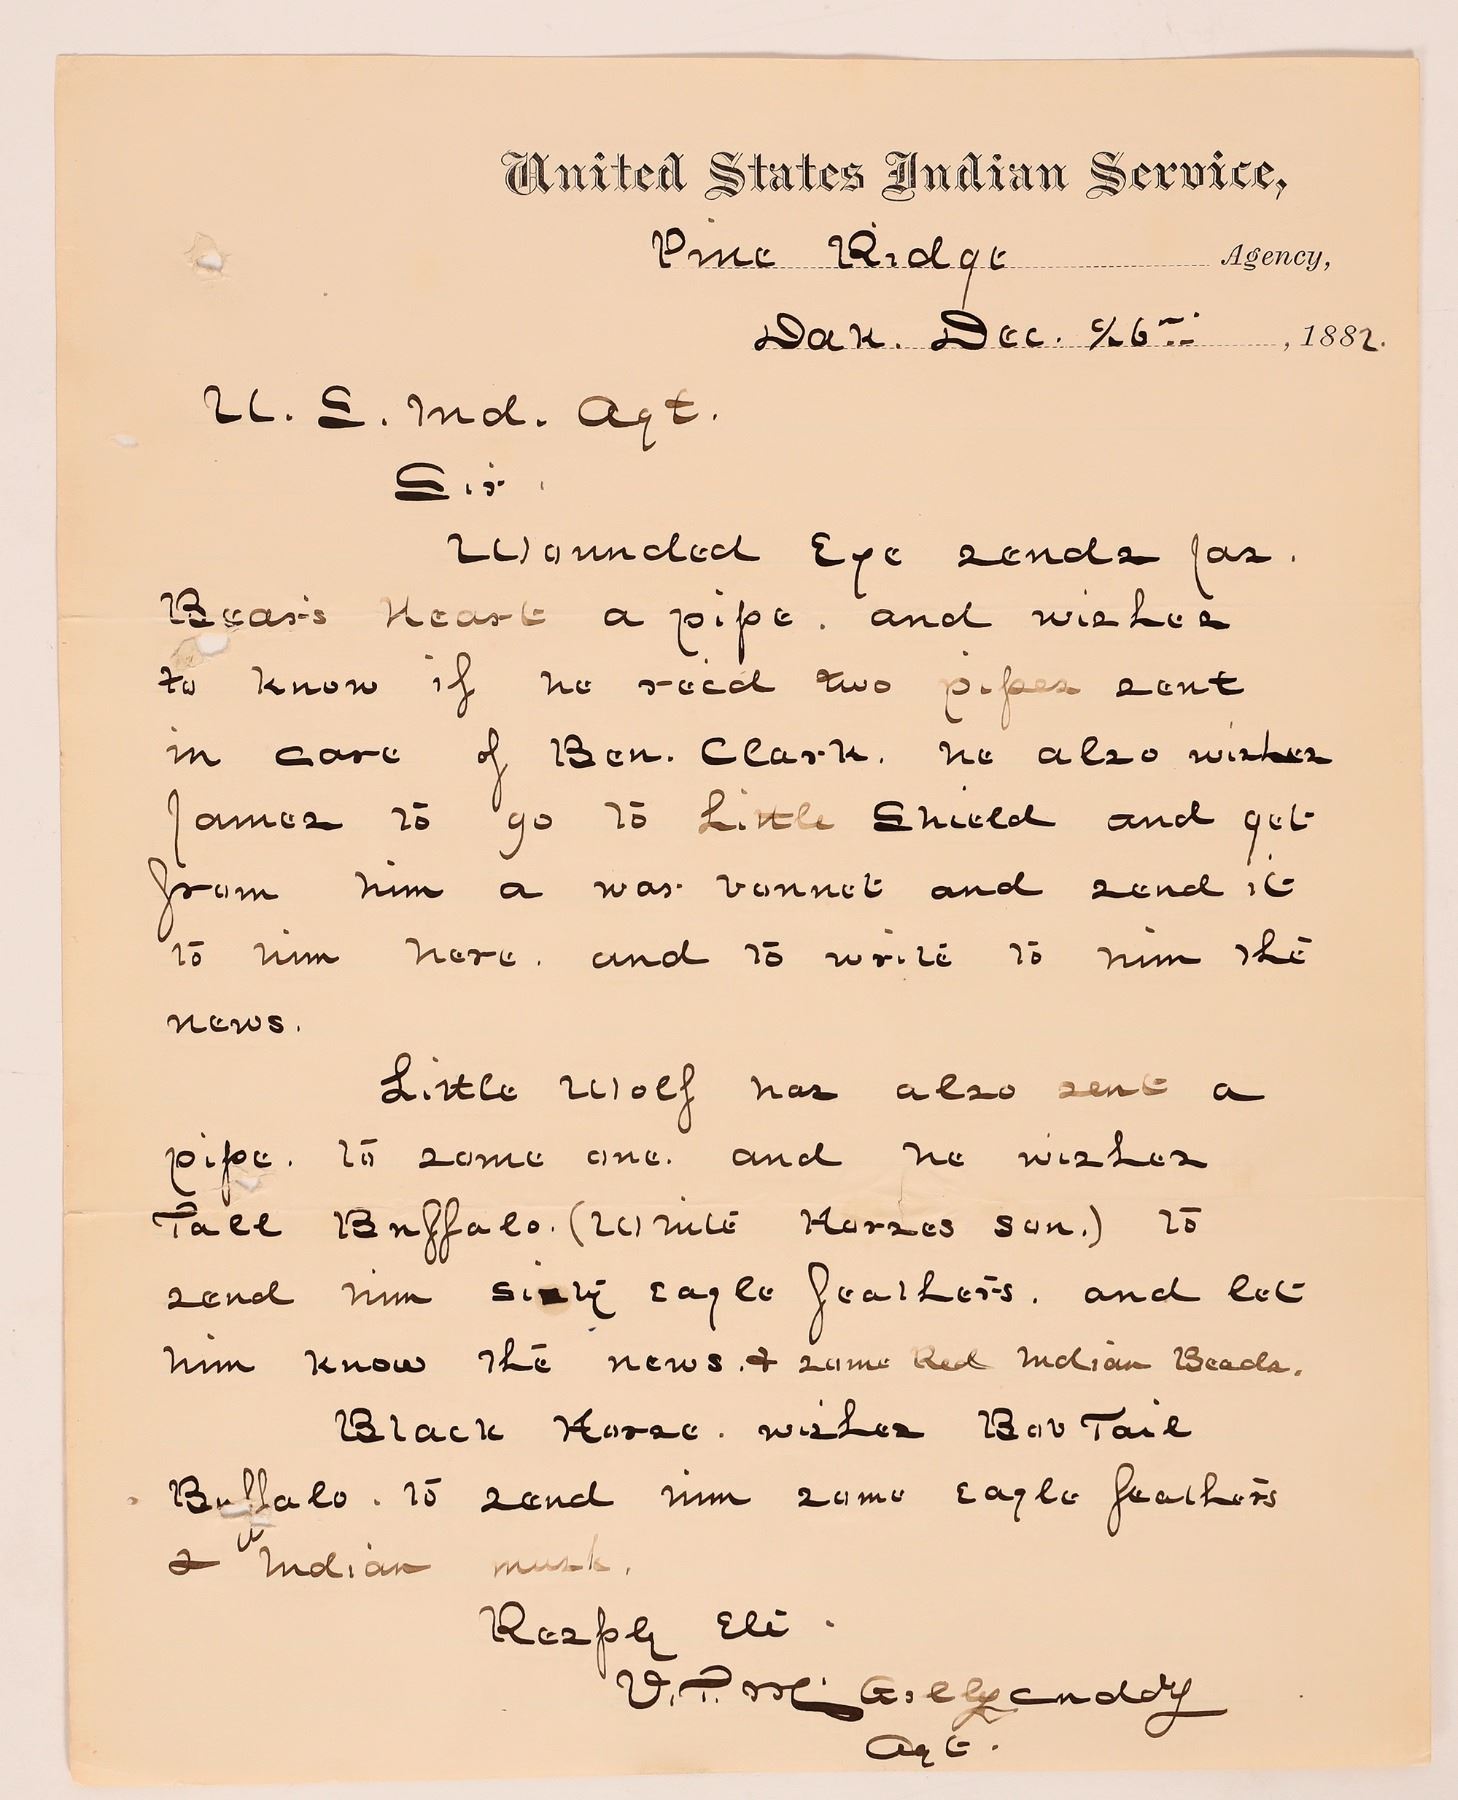 United States Indian Service,
Pine Ridge Agency,
Dak. Dec. 1882.
U. S. Ind. Agt.
Sir.
Wounded Eye sends Jas.
Bear's Heart a pipe. and wishes
to know if he rec'd two pipes sent
in care of Ben. Clark. he also wishes
James to go to Little Shield and get
from him a war bonnet and send it
to him here. and to write to him the
news.
Little Wolf has also sent a
pipe. to some one. and he wishes
Tall Buffalo. (White Horses son.) to
send him sixty eagle feathers. and let
him know the news. & some Red Indian Beads.
Black Horse. wishes Bob Tail
Buffalo. to send him some eagle feathers
& Indian musk.
Resply Etc.
V. T. McGillycuddy
Agt.